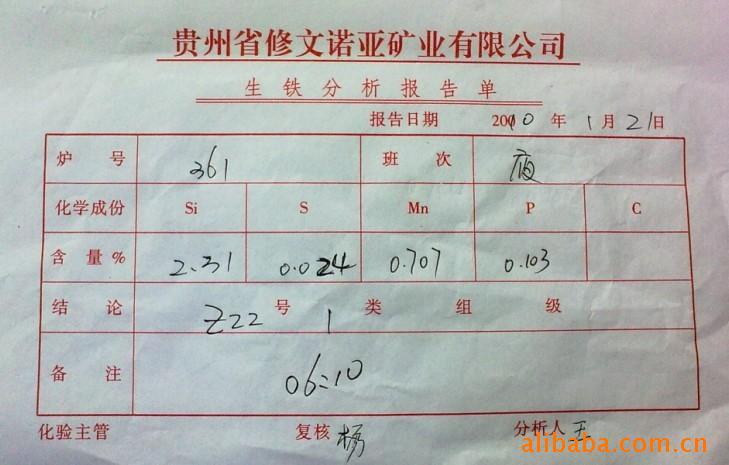 贵州省修文诺亚矿业有限公司
生铁分析报告单
报告日期 2010 年 1 月 21 日
炉号 361 班次 夜
化学成份 Si S Mn P C
含量% 2.31 0.024 0.707 0.103
结论 Z22 号 1 类 组 级
备注 06:10
化验主管 复核 杨 分析人 王
alibaba.com.cn